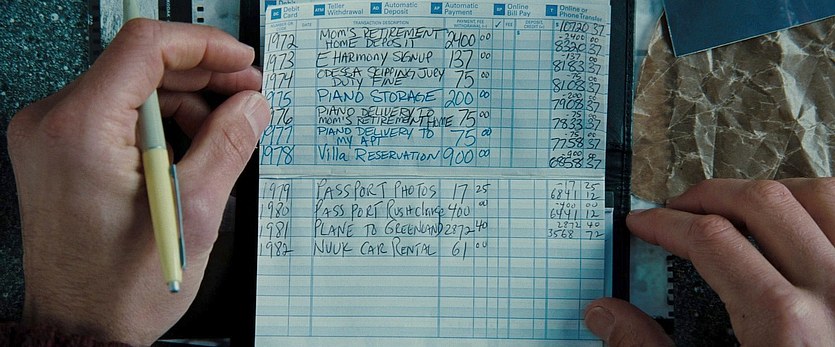 Debit Card ATM Teller Withdrawal AD Automatic Deposit AP Automatic Payment BP Online Bill Pay T Online or Phone Transfer
DATE TRANSACTION DESCRIPTION PAYMENT, FEE ✓ FEE DEPOSIT $ 10720 37
1972 MOM'S RETIREMENT HOME DEPOSIT 2400 00 -2400 00
8320 37
1973 E HARMONY SIGNUP 137 00 -137 00
8183 37
1974 ODESSA SKIPPING JURY DUTY FINE 75 00 -75 00
8108 37
975 PIANO STORAGE 200 00 -200 00
7908 37
76 PIANO DELIVERY TO MOM'S RETIREMENT HOME 75 00 -75 00
7833 37
977 PIANO DELIVERY TO MY APT 75 00 -75 00
7758 37
1978 Villa RESERVATION 900 00 -900 00
6858 37
1979 PASSPORT PHOTOS 17 25 -17 25
6841 12
1980 PASSPORT RUSH charge 400 00 -400 00
6441 12
1981 PLANE TO GREENLAND 2872 40 2872 40
3568 72
1982 NUUK CAR RENTAL 61 00